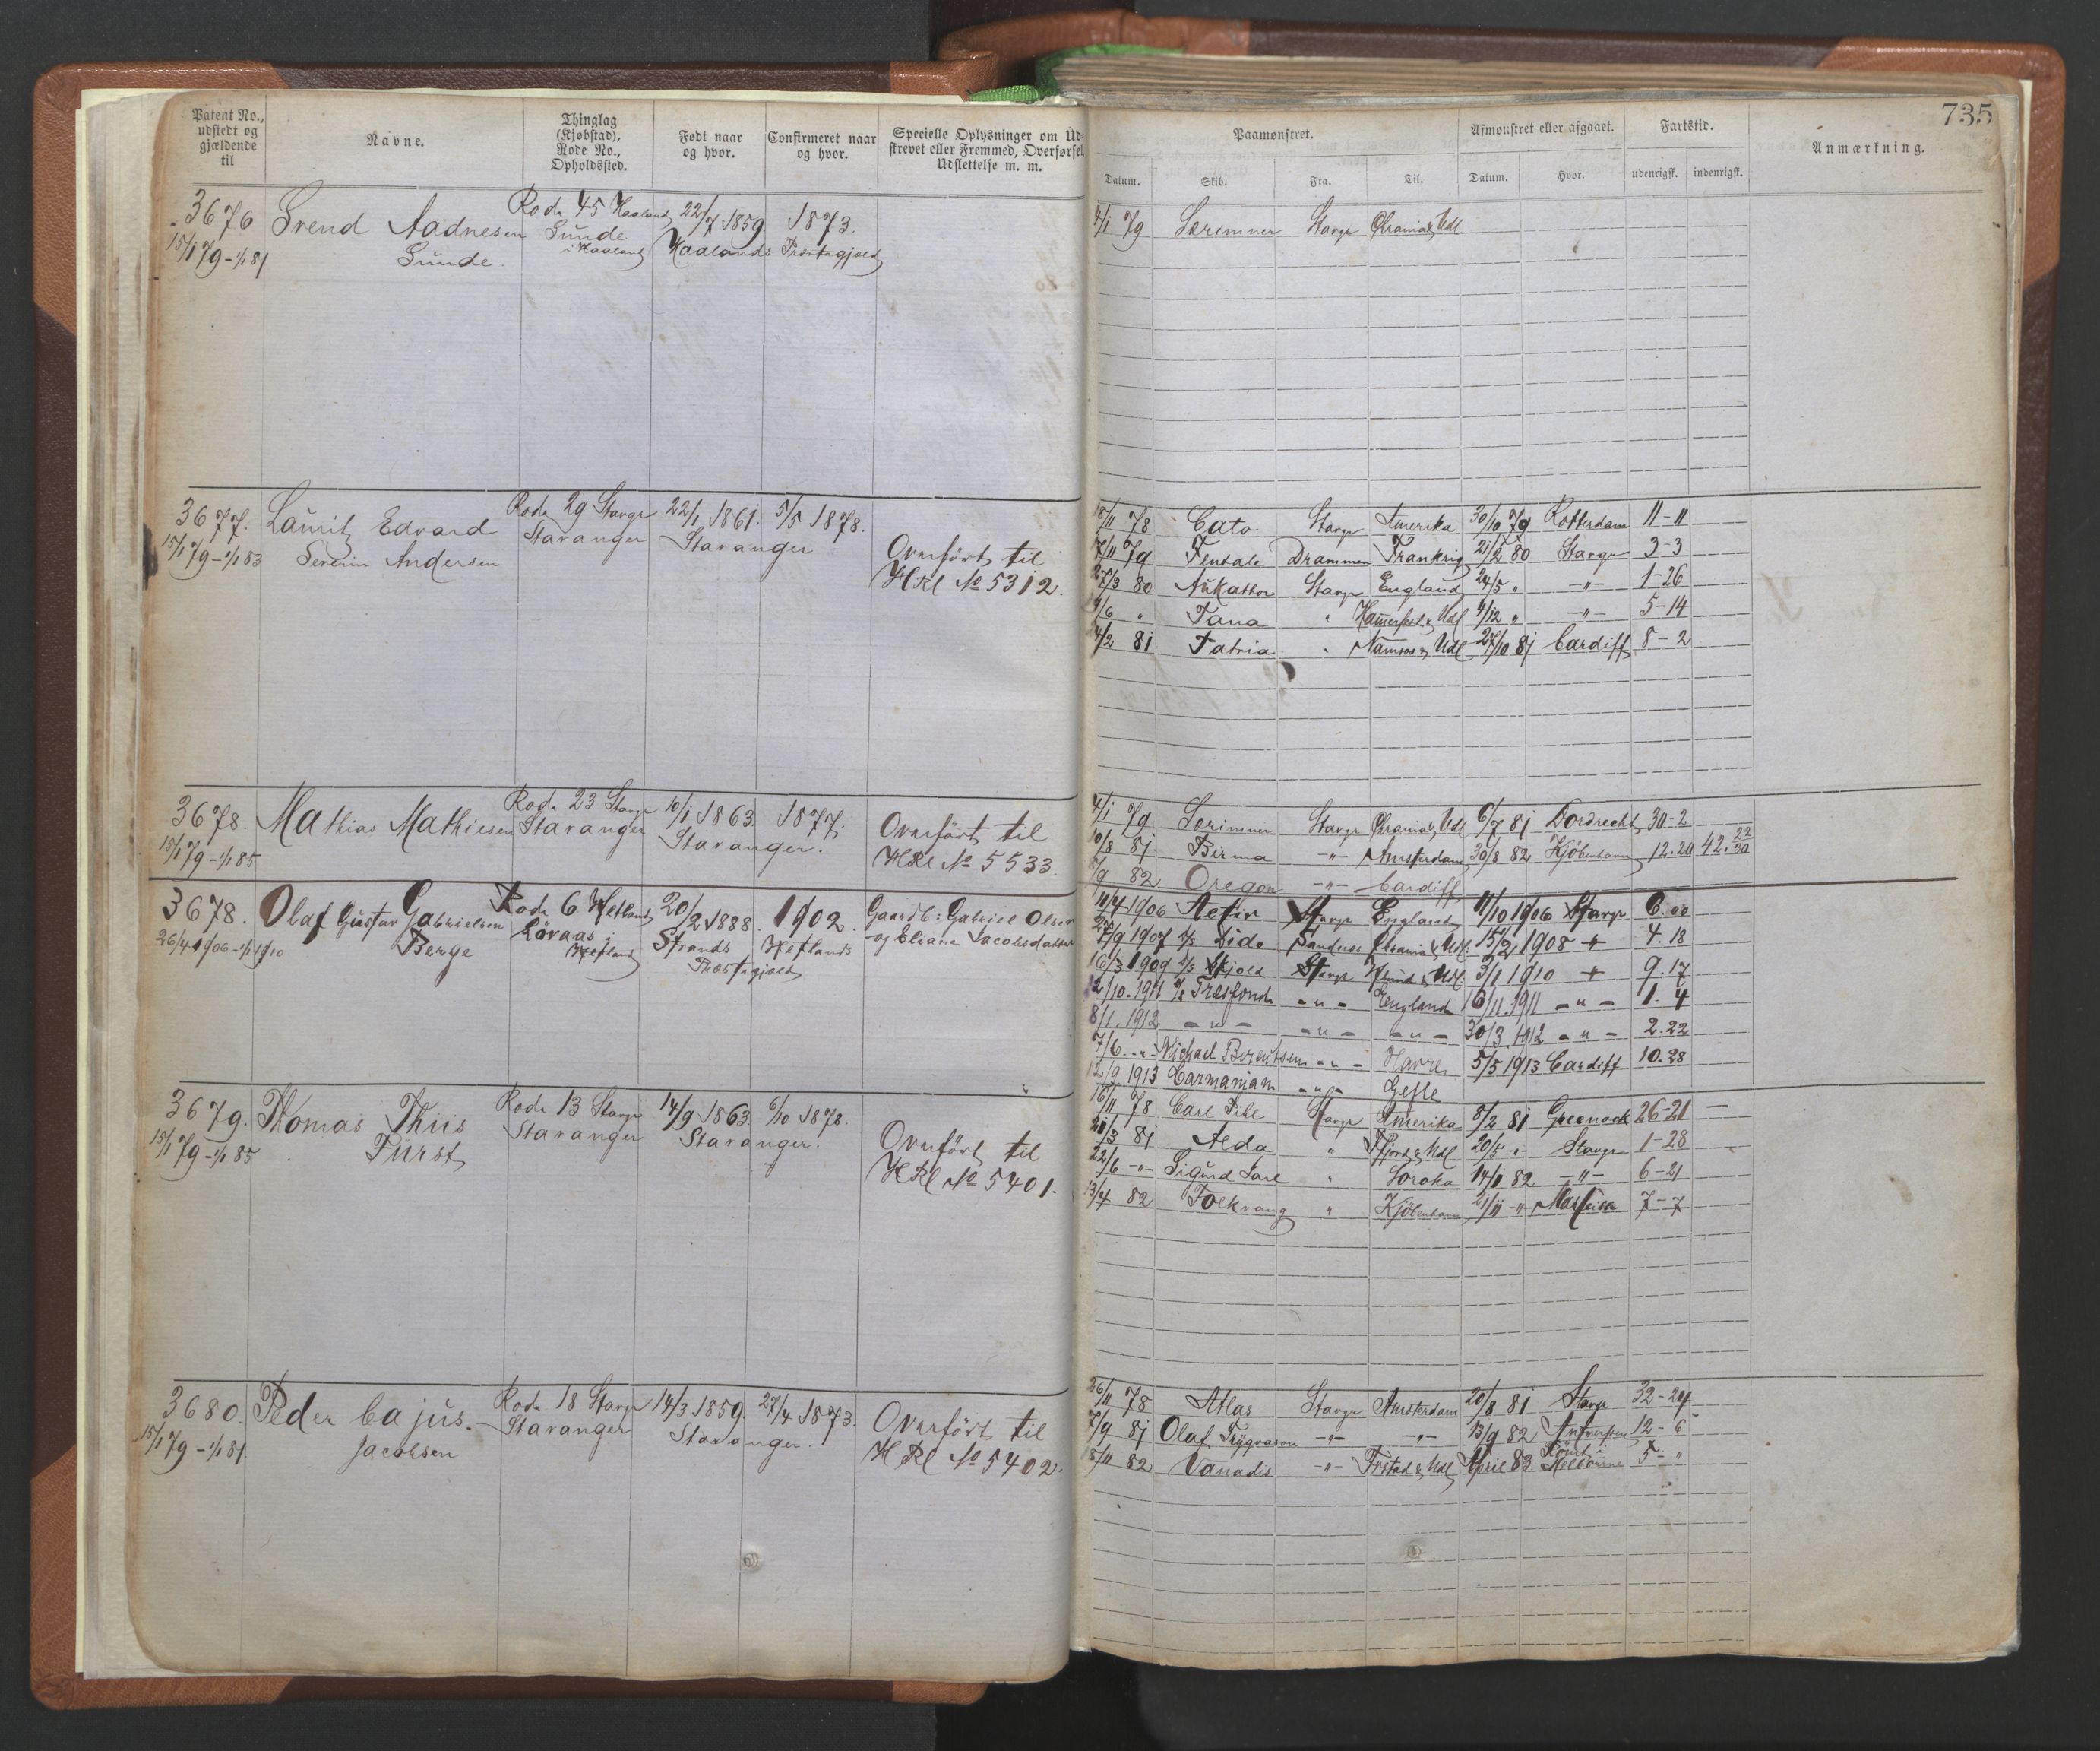 735
Patent No., udstedt og gjældende til
Navne.
Thinglag (Kjøbstad), Rode No., Opholdssted.
Født naar og hvor.
Confirmeret naar og hvor.
Specielle Oplysninger om Ud-
strevet eller Fremmed, Overførsel,
Udslettelse m. m.
Paamønstret.
Afmønstret eller afgaaet.
Fartstid.
Anmærkning.
Datum. Skib. Fra. Til. Datum. Hvor. udenrigsk. indenrigsk.
3676 Svend Aadnesen Rode 45 Haaland 22/7 1859 1873.
15/1 79 - 1/1 81 Sunde Sunde i Haaland Haalands Præstegjæld
4/1 79 Særimner Stavgr Chrania & Udl
3677. Lauritz Edvard Rode 29 Stavgr 22/1 1861. 5/5 1878.
15/1 79 - 1/1 83 Severin Andersen Stavanger Stavanger
Overført til
HRl No 5312.
18/11 78 Cato Stavgr Amerika 30/10 79 Rotterdam 11-11
7/11 79 Drammen Frankrig 21/2 80 Stavgr 3-3
27/3 80 Stavgr England 24/5 " -"- 1-26
9/6 " Tana " Hammerfest & Udl 4/12 " -"- 5-14
4/2 81 Patria " Namsos & Udl 27/10 81 Cardiff 8-2
3678. Mathias Mathiesen Rode 23 Stavgr 10/1 1863. 1877.
15/1 79 - 1/1 85 Stavanger Stavanger.
Overført til
HRl No 5533
4/1 79 Særimner Stavgr Chrania & Udl 6/7 81 Dordrecht 30-2
10/8 81 Birma -"- Amsterdam 30/8 82 Kjöbenhavn 12.20 42. 22/30
7/9 82 Oregon -"- Cardiff
3678. Olaf Gustav Gabrielsen Rode 6 Hetland 20/2 1888. 1902.
26/4 1906 - 1/1 1910 Berge Hetland Strands Præstegjæld Hetlands
Gaardb: Gabriel Olsen
og Eliane Jacobsdatter
11/4 1906 Aetir Stavgr England 11/10 1906 Stavgr 6.00
27/9 1907 Lide Sandnes Chrania & Udl. 15/2 1908 4.18
16/3 1909 Skjold Stavgr & Udl. 3/1 1910 9.17
12/10. 1911 Træsfond -"- England 16/11. 1911 -"- 1. 4
8/1. 1912 -"- -"- -"- 30/3. 1912 -"- 2.22
7/6. -"- Michael Berentsen -"- Havre 5/5 1913 Cardiff 10.28
12/9 1913 Carmanian -"- Gefle
3679. Thomas Thiis Rode 13 Stavgr 14/9 1863. 6/10 1878.
15/1 79 - 1/1 85 Furst Stavanger Stavanger.
Overført til
HRl No 5401.
16/11 78 Carl Pihl Stavgr Amerika 8/2 81 Greenock 26-21
21/3 81 Alda " Fjord & Udl 20/5 -"- Stavgr 1-28
22/6 -"- Sigurd Jarl " Soroka 14/1 82 -"- 6-21
13/4 82 Folkvang " Kjöbenhavn 21/11 -"- 7-7
3680. Peder Cajus. Rode 18 Stavgr 14/3 1859. 27/4 1873.
15/1 79 - 1/1 81 Jacobsen Stavanger Stavanger.
Overført til
HRl No 5402.
26/11 78 Atlas Stavgr Amsterdam 20/8 81 Stavgr 32-24
7/9 81 Olaf Trygvason -"- -"- 13/9 82 Antverpen 12-6
15/11 82 Vanadis -"- Frstad & Udl April 83 Römt i Melbourne 5-"